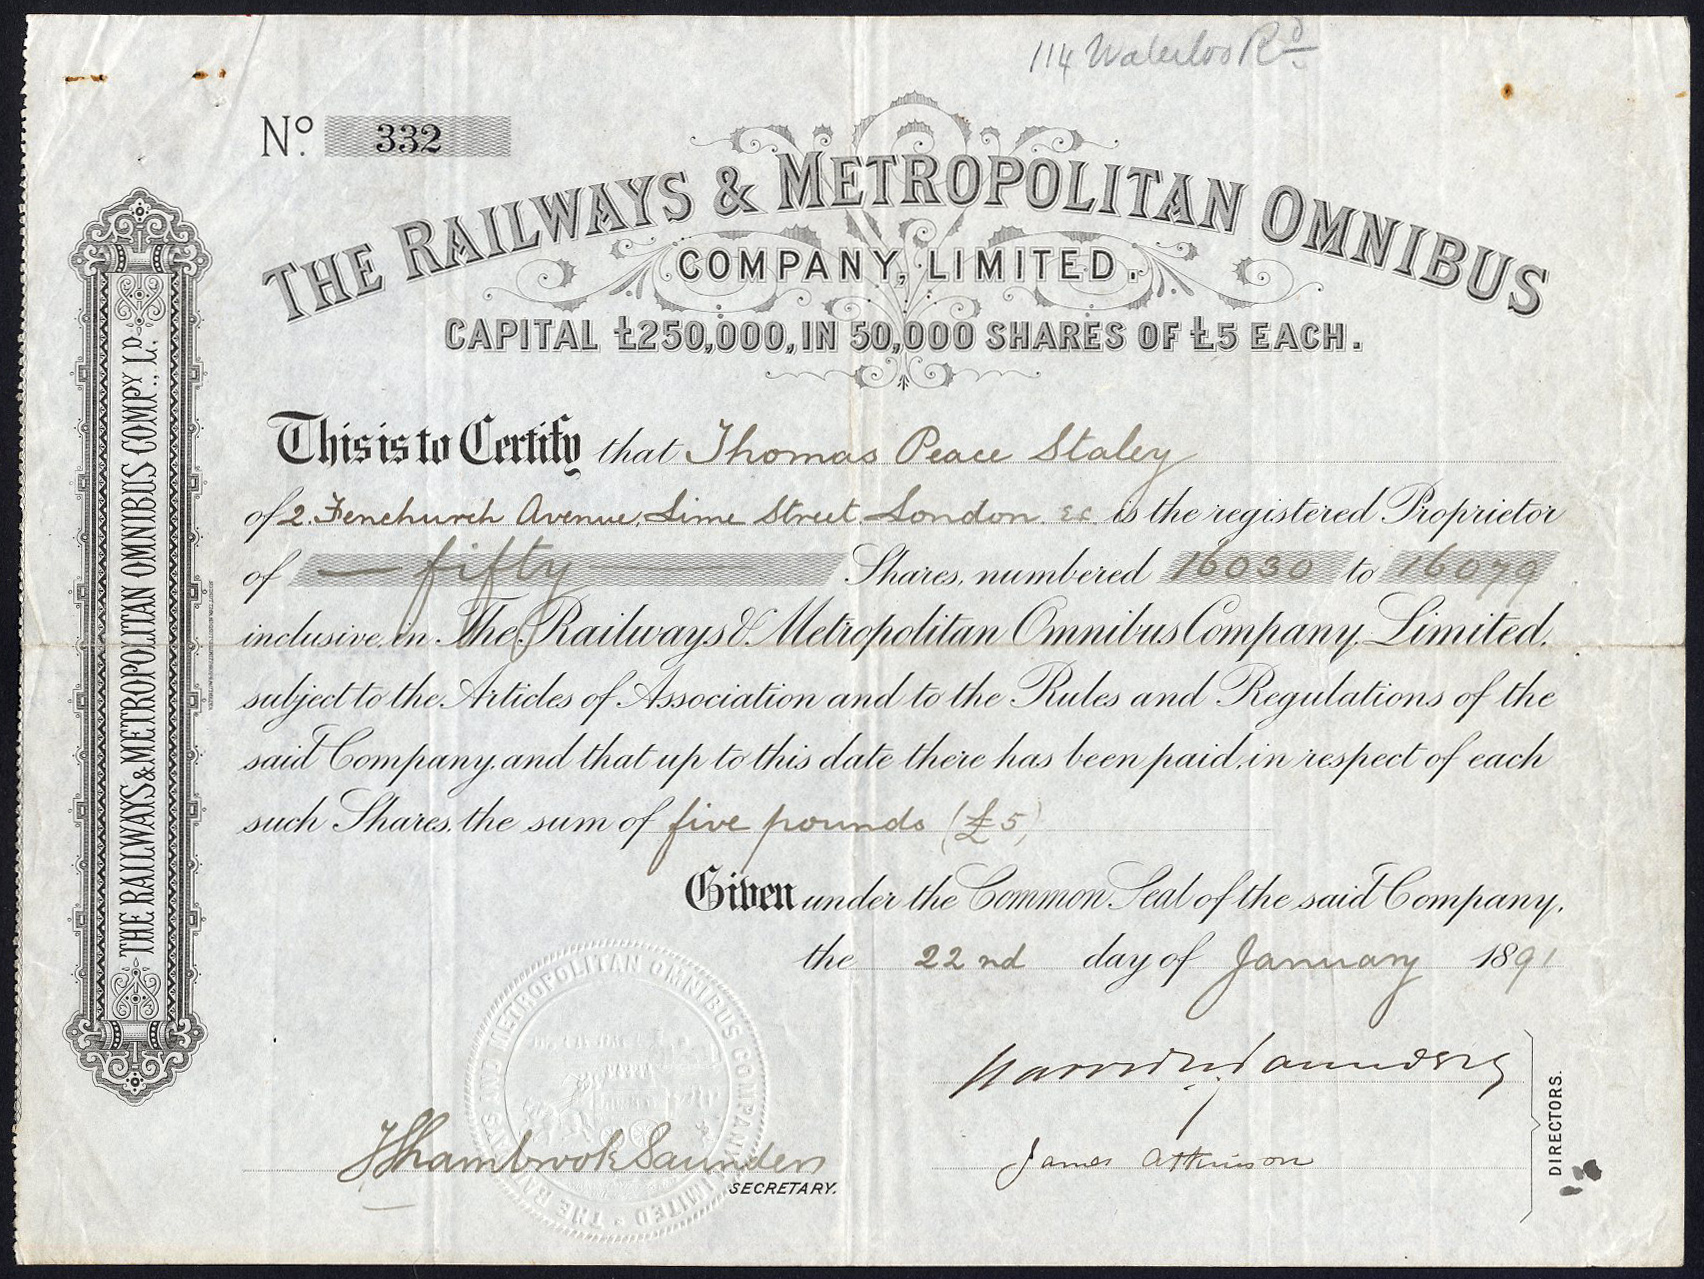 114 Waterloo Rd
No. 332
THE RAILWAYS & METROPOLITAN OMNIBUS
COMPANY, LIMITED.
CAPITAL £250,000, IN 50,000 SHARES OF £5 EACH.
THE RAILWAYS & METROPOLITAN OMNIBUS COMPY., LD.
This is to Certify that Thomas Peace Staley
of 2. Fenchurch Avenue, Lime Street London. EC is the registered Proprietor
of — fifty — Shares, numbered 16030 to 16079
inclusive, in The Railways & Metropolitan Omnibus Company, Limited,
subject to the Articles of Association and to the Rules and Regulations of the
said Company, and that up to this date there has been paid, in respect of each
such Shares, the sum of five pounds (£5)
Given under the Common Seal of the said Company,
the 22nd day of January 1891
Saunders
James Atkinson
DIRECTORS.
Shambrook Saunders
SECRETARY.
THE RAILWAYS AND METROPOLITAN OMNIBUS COMPANY LIMITED